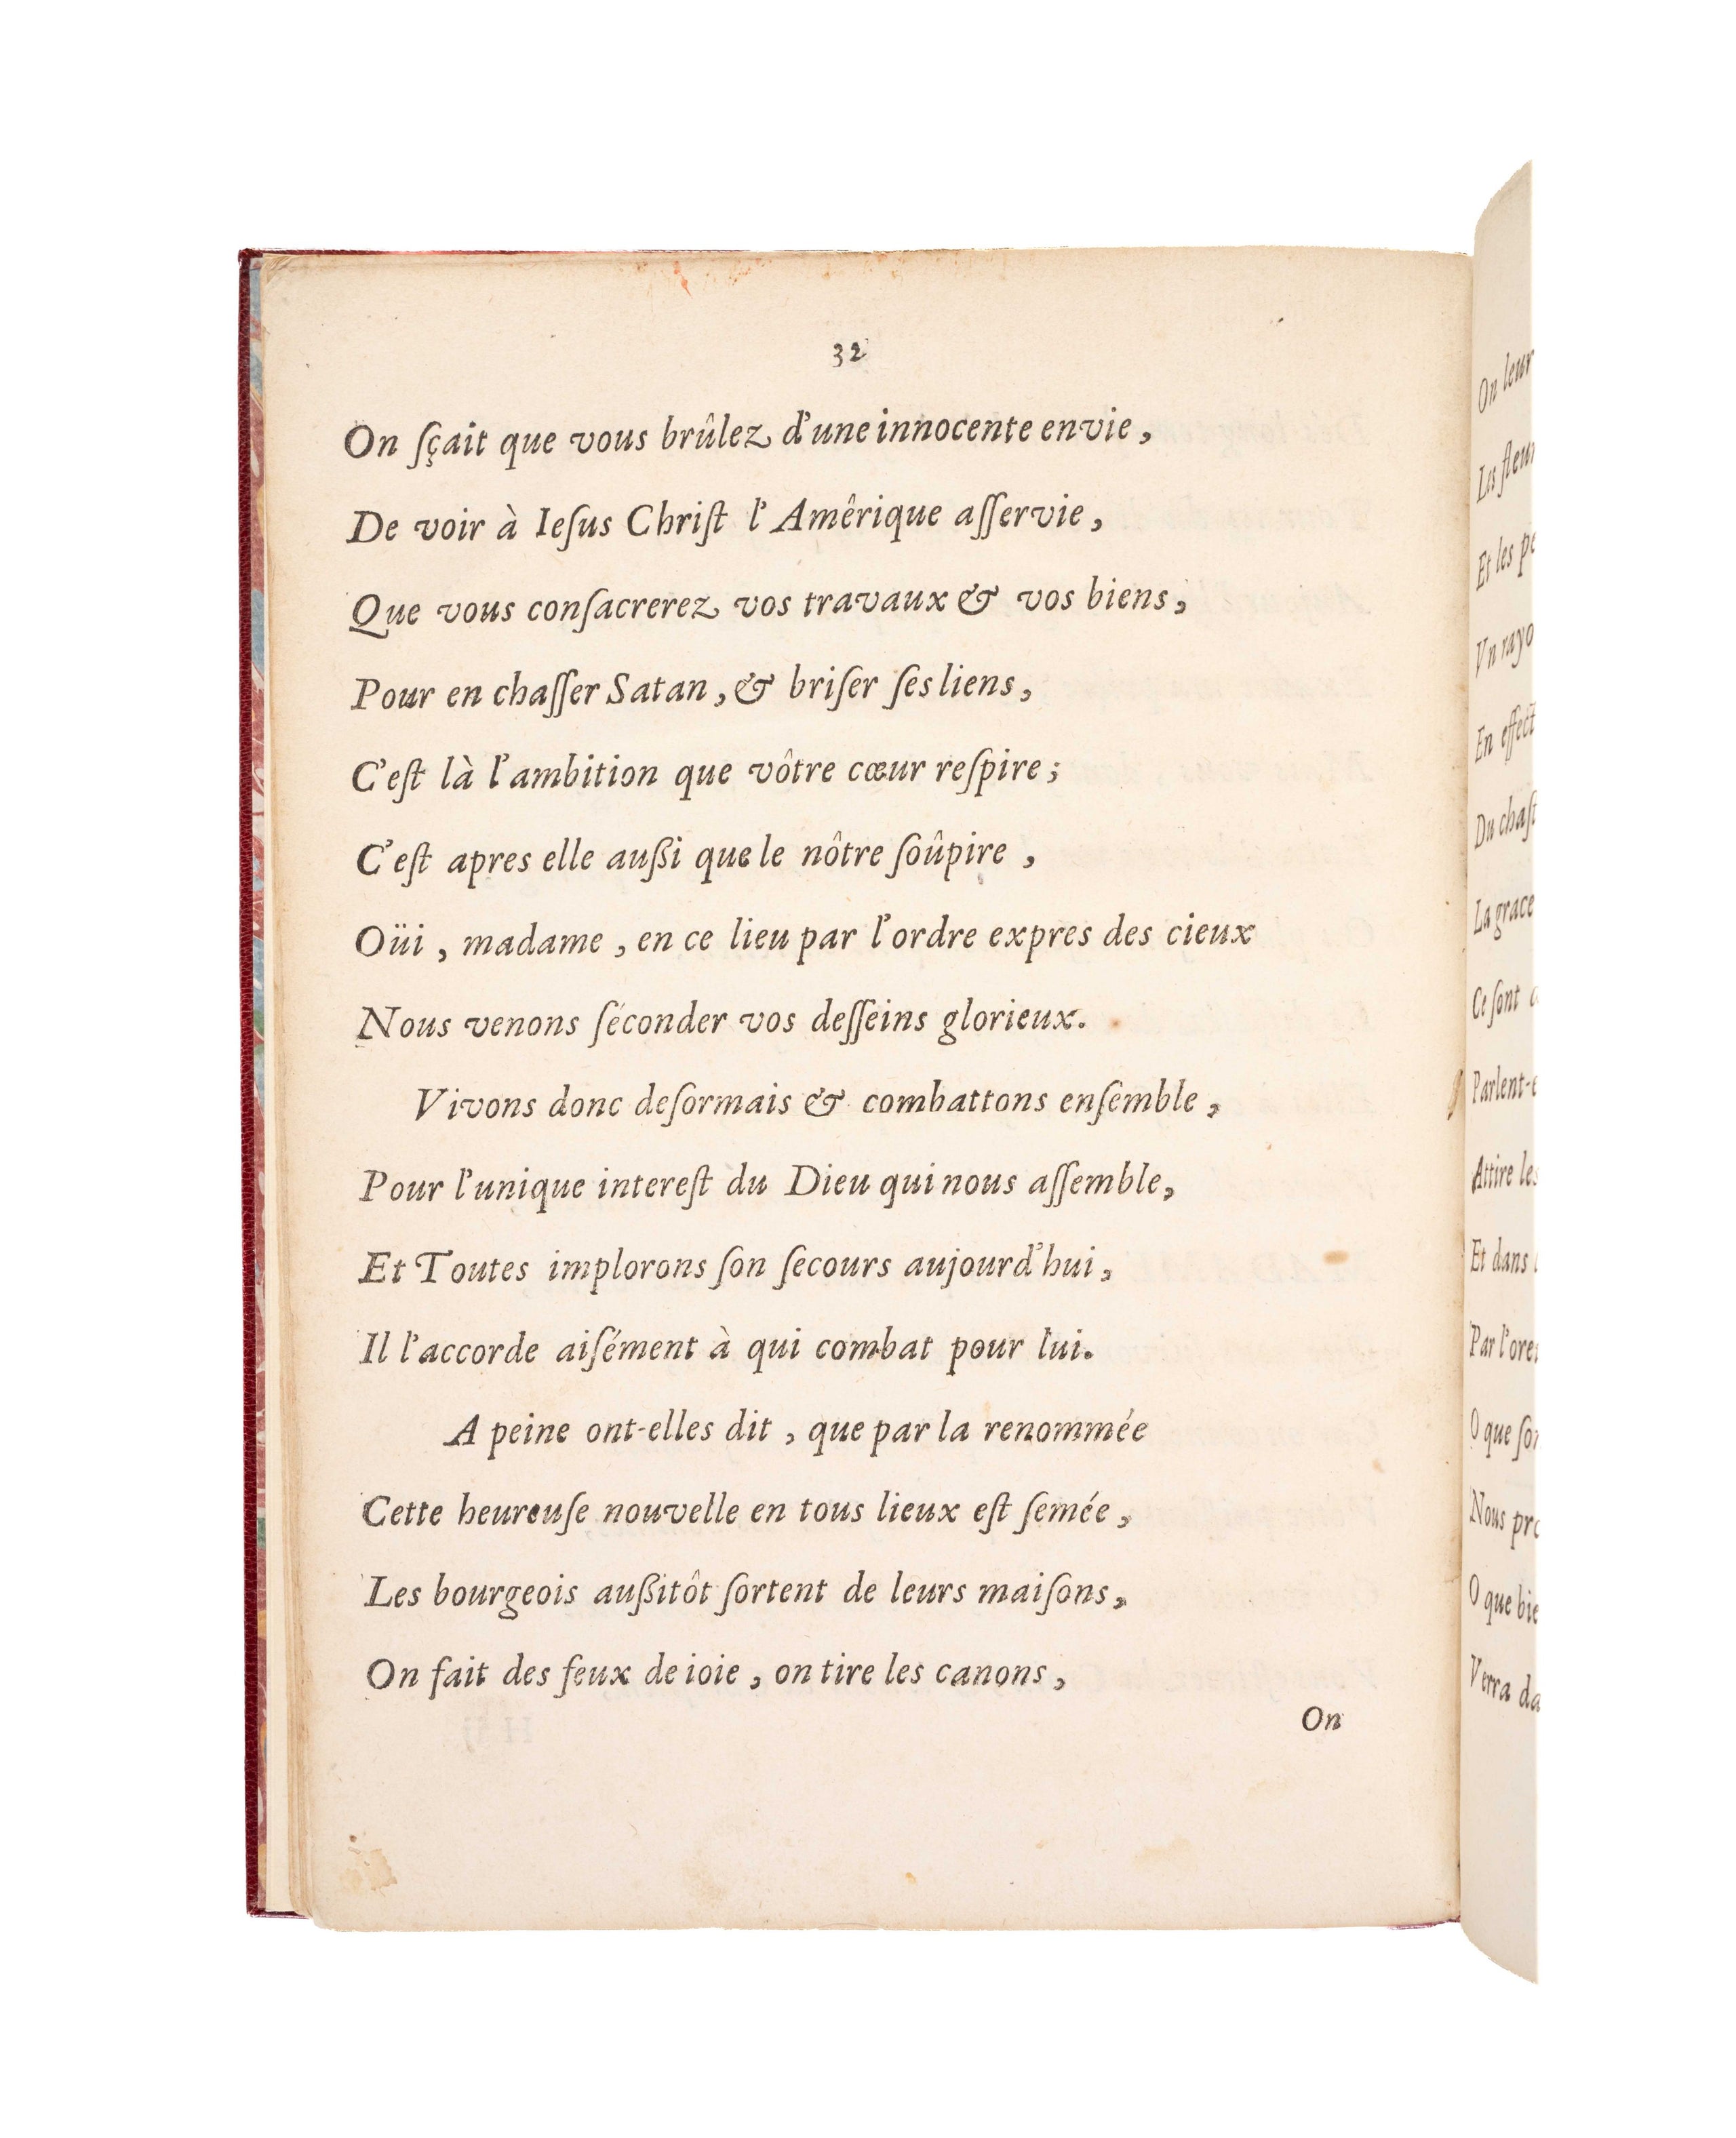 32
On ſçait que vous brûlez d'une innocente envie,
De voir à Ieſus Chriſt l'Amêrique aſſervie,
Que vous conſacrerez vos travaux & vos biens,
Pour en chaſſer Satan, & briſer ſes liens,
C'eſt là l'ambition que vôtre cœur reſpire;
C'eſt apres elle außi que le nôtre ſoûpire,
Oüi, madame, en ce lieu par l'ordre expres des cieux
Nous venons ſéconder vos deſſeins glorieux.
Vivons donc deſormais & combattons enſemble,
Pour l'unique intereſt du Dieu qui nous aſſemble,
Et Toutes implorons ſon ſecours aujourd'hui,
Il l'accorde aiſément à qui combat pour lui.
A peine ont-elles dit, que par la renommée
Cette heureuſe nouvelle en tous lieux eſt ſemée,
Les bourgeois außitôt ſortent de leurs maiſons,
On fait des feux de ioie, on tire les canons,
On
On leur
Les fleur
Et les pe
Vn rayo
En effect
Du chaſt
La grace
Ce ſont
Parlent-e
Attire les
Et dans
Par l'ore
O que ſo
Nous pro
O que bie
Verra da